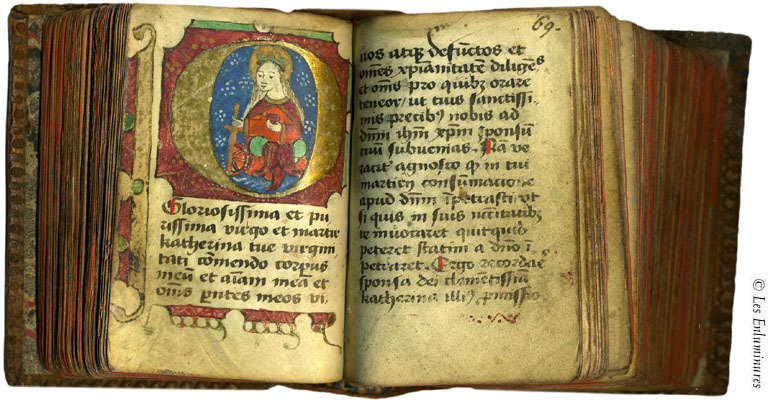 Gloriosissima et pu
rissima virgo et martir
katherina tue virgini
tati comendo corpus
meū et aīam meā et
om̄s pntes meos vi
69.
uos atqȝ defuctos et
om̄es xp̄ianitatem diligēs
et om̄s pro quibȝ orare
teneor / ut tuis sanctissi
mis precibȝ nobis ad
dnm̄ ihm̄ xpm̄ sponsū
tuū subuenias. Nā ve
raciť agnosco qꝫ in tui
martirii consumacione
apud dnm̄ īpetrasti vt
si quis in suis nccītatibȝ
te inuocaret quitquid
peteret statim a dn̄o ī
petraret. Ergo recordare
sponsa dei clementissīa
katherina illiȝ pmissio
© Les Enluminures